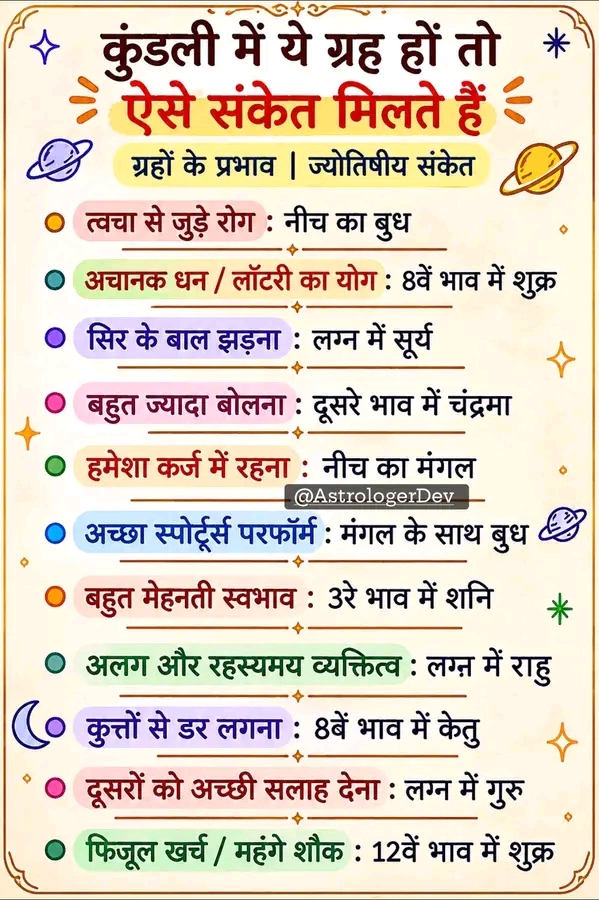 कुंडली में ये ग्रह हों तो
ऐसे संकेत मिलते हैं
ग्रहों के प्रभाव | ज्योतिषीय संकेत
त्वचा से जुड़े रोग : नीच का बुध
अचानक धन / लॉटरी का योग : 8वें भाव में शुक्र
सिर के बाल झड़ना : लग्न में सूर्य
बहुत ज्यादा बोलना : दूसरे भाव में चंद्रमा
हमेशा कर्ज में रहना : नीच का मंगल
@AstrologerDev
अच्छा स्पोर्ट्र्स परफॉर्म : मंगल के साथ बुध
बहुत मेहनती स्वभाव : 3रे भाव में शनि
अलग और रहस्यमय व्यक्तित्व : लग्न में राहु
कुत्तों से डर लगना : 8बें भाव में केतु
दूसरों को अच्छी सलाह देना : लग्न में गुरु
फिजूल खर्च / महंगे शौक : 12वें भाव में शुक्र